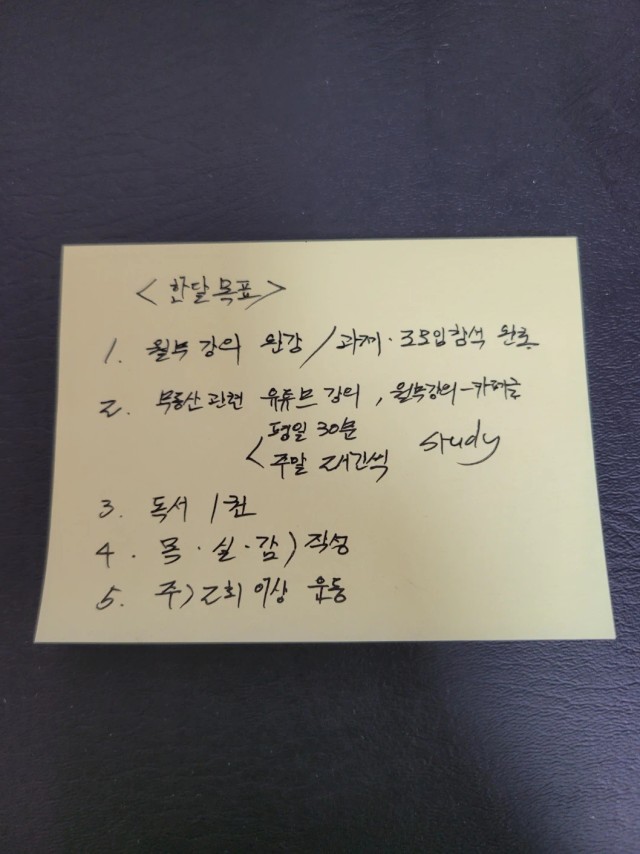 <한달 목표>
1. 월부 강의 완강 / 과제·조모임 참석 완료
2. 부동산 관련 유튜브 강의, 월부강의-카페글
< 평일 30분
주말 2시간씩 study
3. 독서 1권
4. 목·실·감) 작성
5. 주) 2회 이상 운동